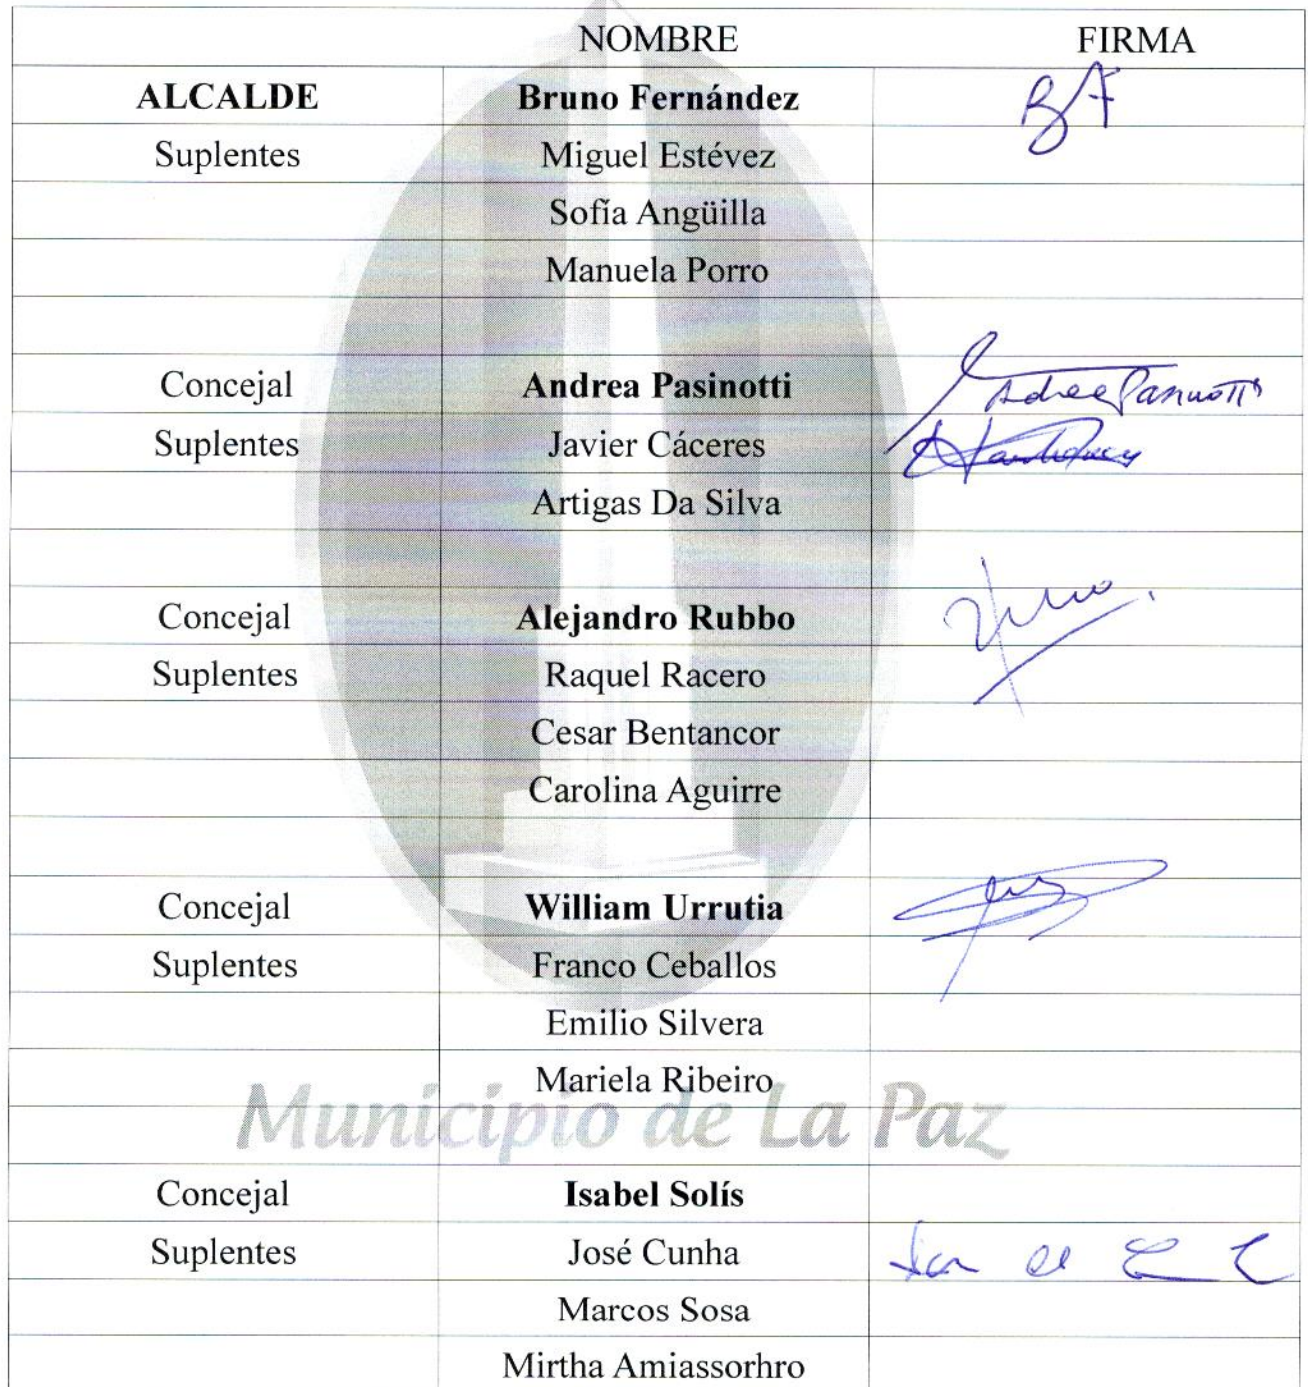 NOMBRE FIRMA
ALCALDE Bruno Fernández BF
Suplentes Miguel Estévez
Sofía Angüilla
Manuela Porro
Concejal Andrea Pasinotti
Suplentes Javier Cáceres
Artigas Da Silva
Concejal Alejandro Rubbo
Suplentes Raquel Racero
Cesar Bentancor
Carolina Aguirre
Concejal William Urrutia
Suplentes Franco Ceballos
Emilio Silvera
Mariela Ribeiro
Municipio de La Paz
Concejal Isabel Solís
Suplentes José Cunha
Marcos Sosa
Mirtha Amiassorhro